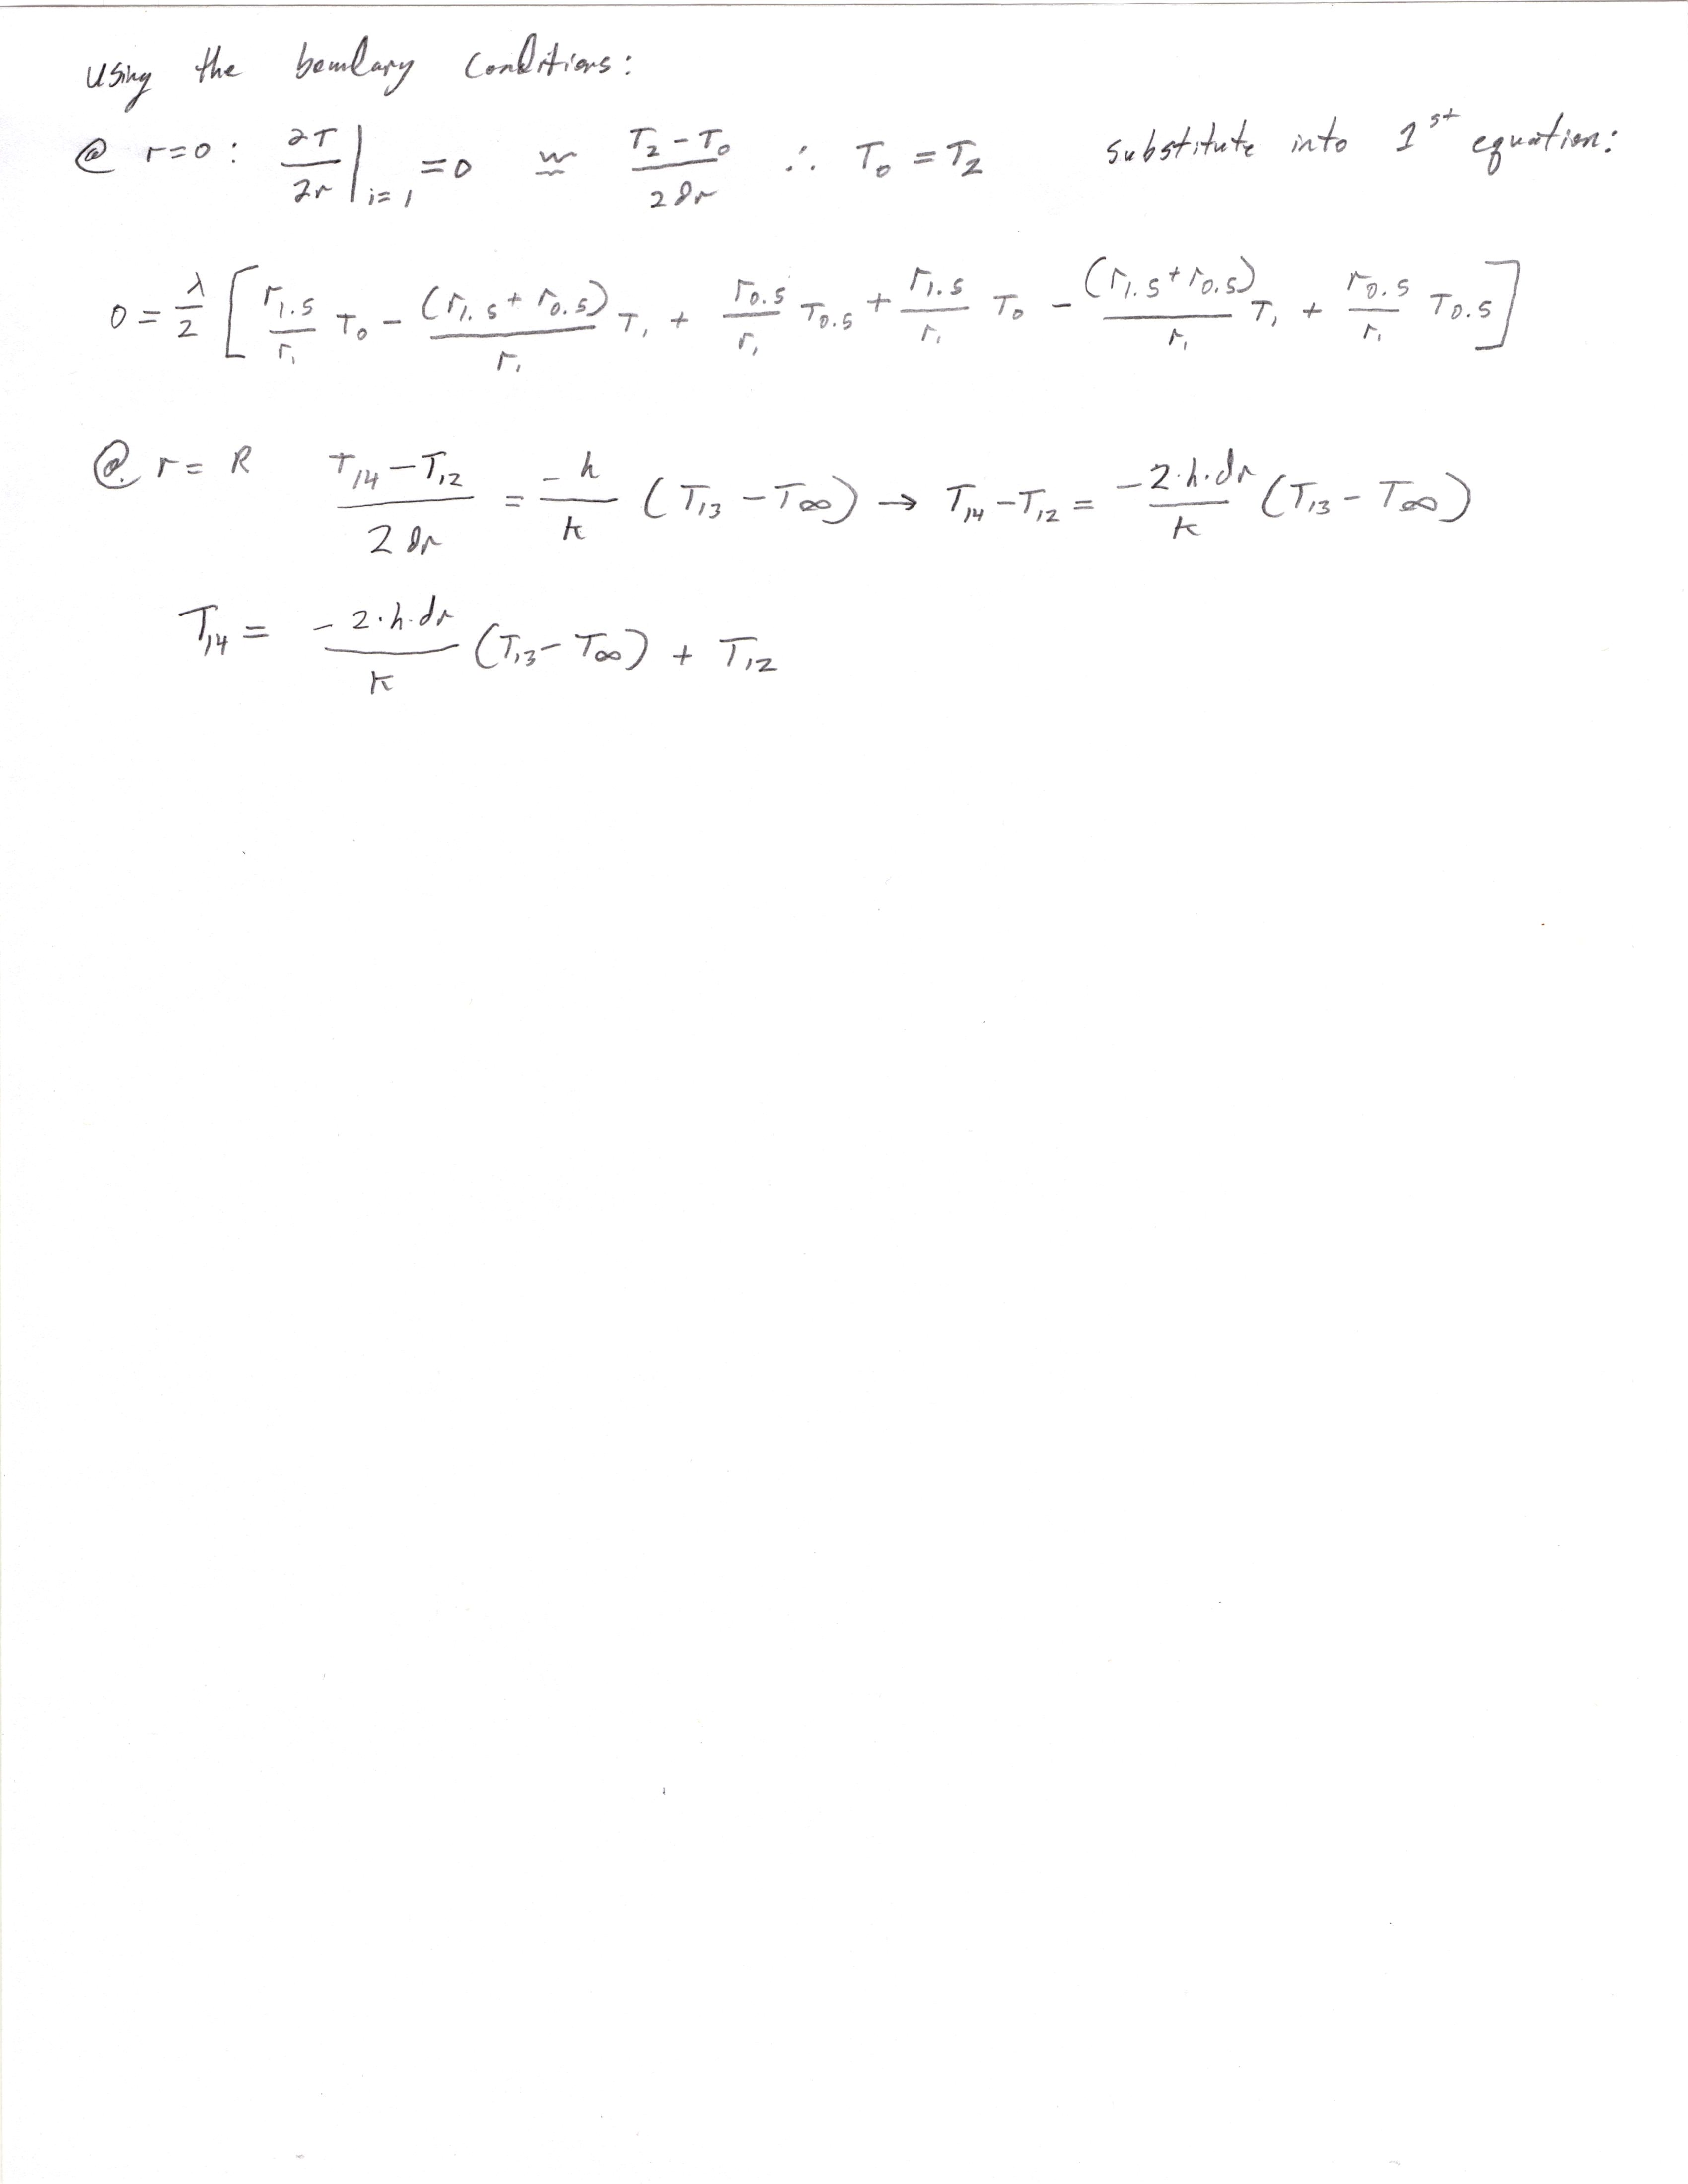 Using the boundary conditions:
@ r=0: ∂T/∂r |i=1 = 0 ≈ (T₂ - T₀)/(2 δr) ∴ T₀ = T₂ substitute into 1st equation:
0 = λ/2 [ r₁.₅/r₁ T₀ - (r₁.₅ + r₀.₅)/r₁ T₁ + r₀.₅/r₁ T₀.₅ + r₁.₅/r₁ T₀ - (r₁.₅ + r₀.₅)/r₁ T₁ + r₀.₅/r₁ T₀.₅ ]
@ r = R (T₁₄ - T₁₂)/(2 δr) = -h/k (T₁₃ - T∞) → T₁₄ - T₁₂ = -2·h·dr/k (T₁₃ - T∞)
T₁₄ = -2·h·dr/k (T₁₃ - T∞) + T₁₂